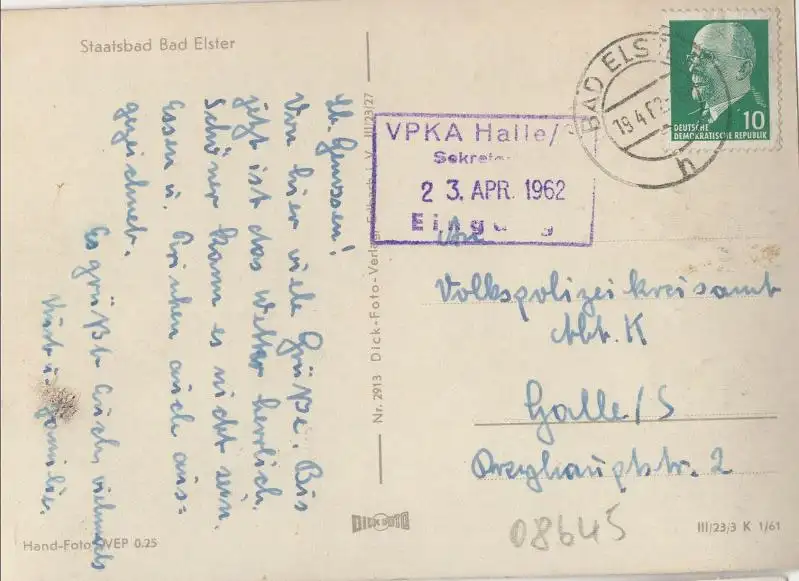 Staatsbad Bad Elster
Lb. Genossen!
Von hier viele Grüße. Bis
jetzt ist das Wetter herrlich.
Schöner kann es nicht sein.
Essen u. Trinken auch aus=
gezeichnet.
Es grüßt Euch vielmals
u. Familie.
Hand-Foto VEP 0.25
Nr. 2913 Dick-Foto-Verlag III/23/27
DICK FOTO
BAD ELSTER
19.4.62
h
10
DEUTSCHE
DEMOKRATISCHE REPUBLIK
VPKA Halle/S
Sekretar
23. APR. 1962
Eingang
An
Volkspolizeikreisamt
Abt. K
Halle/S
Dreyhauptstr. 2
08645
III/23/3 K 1/61